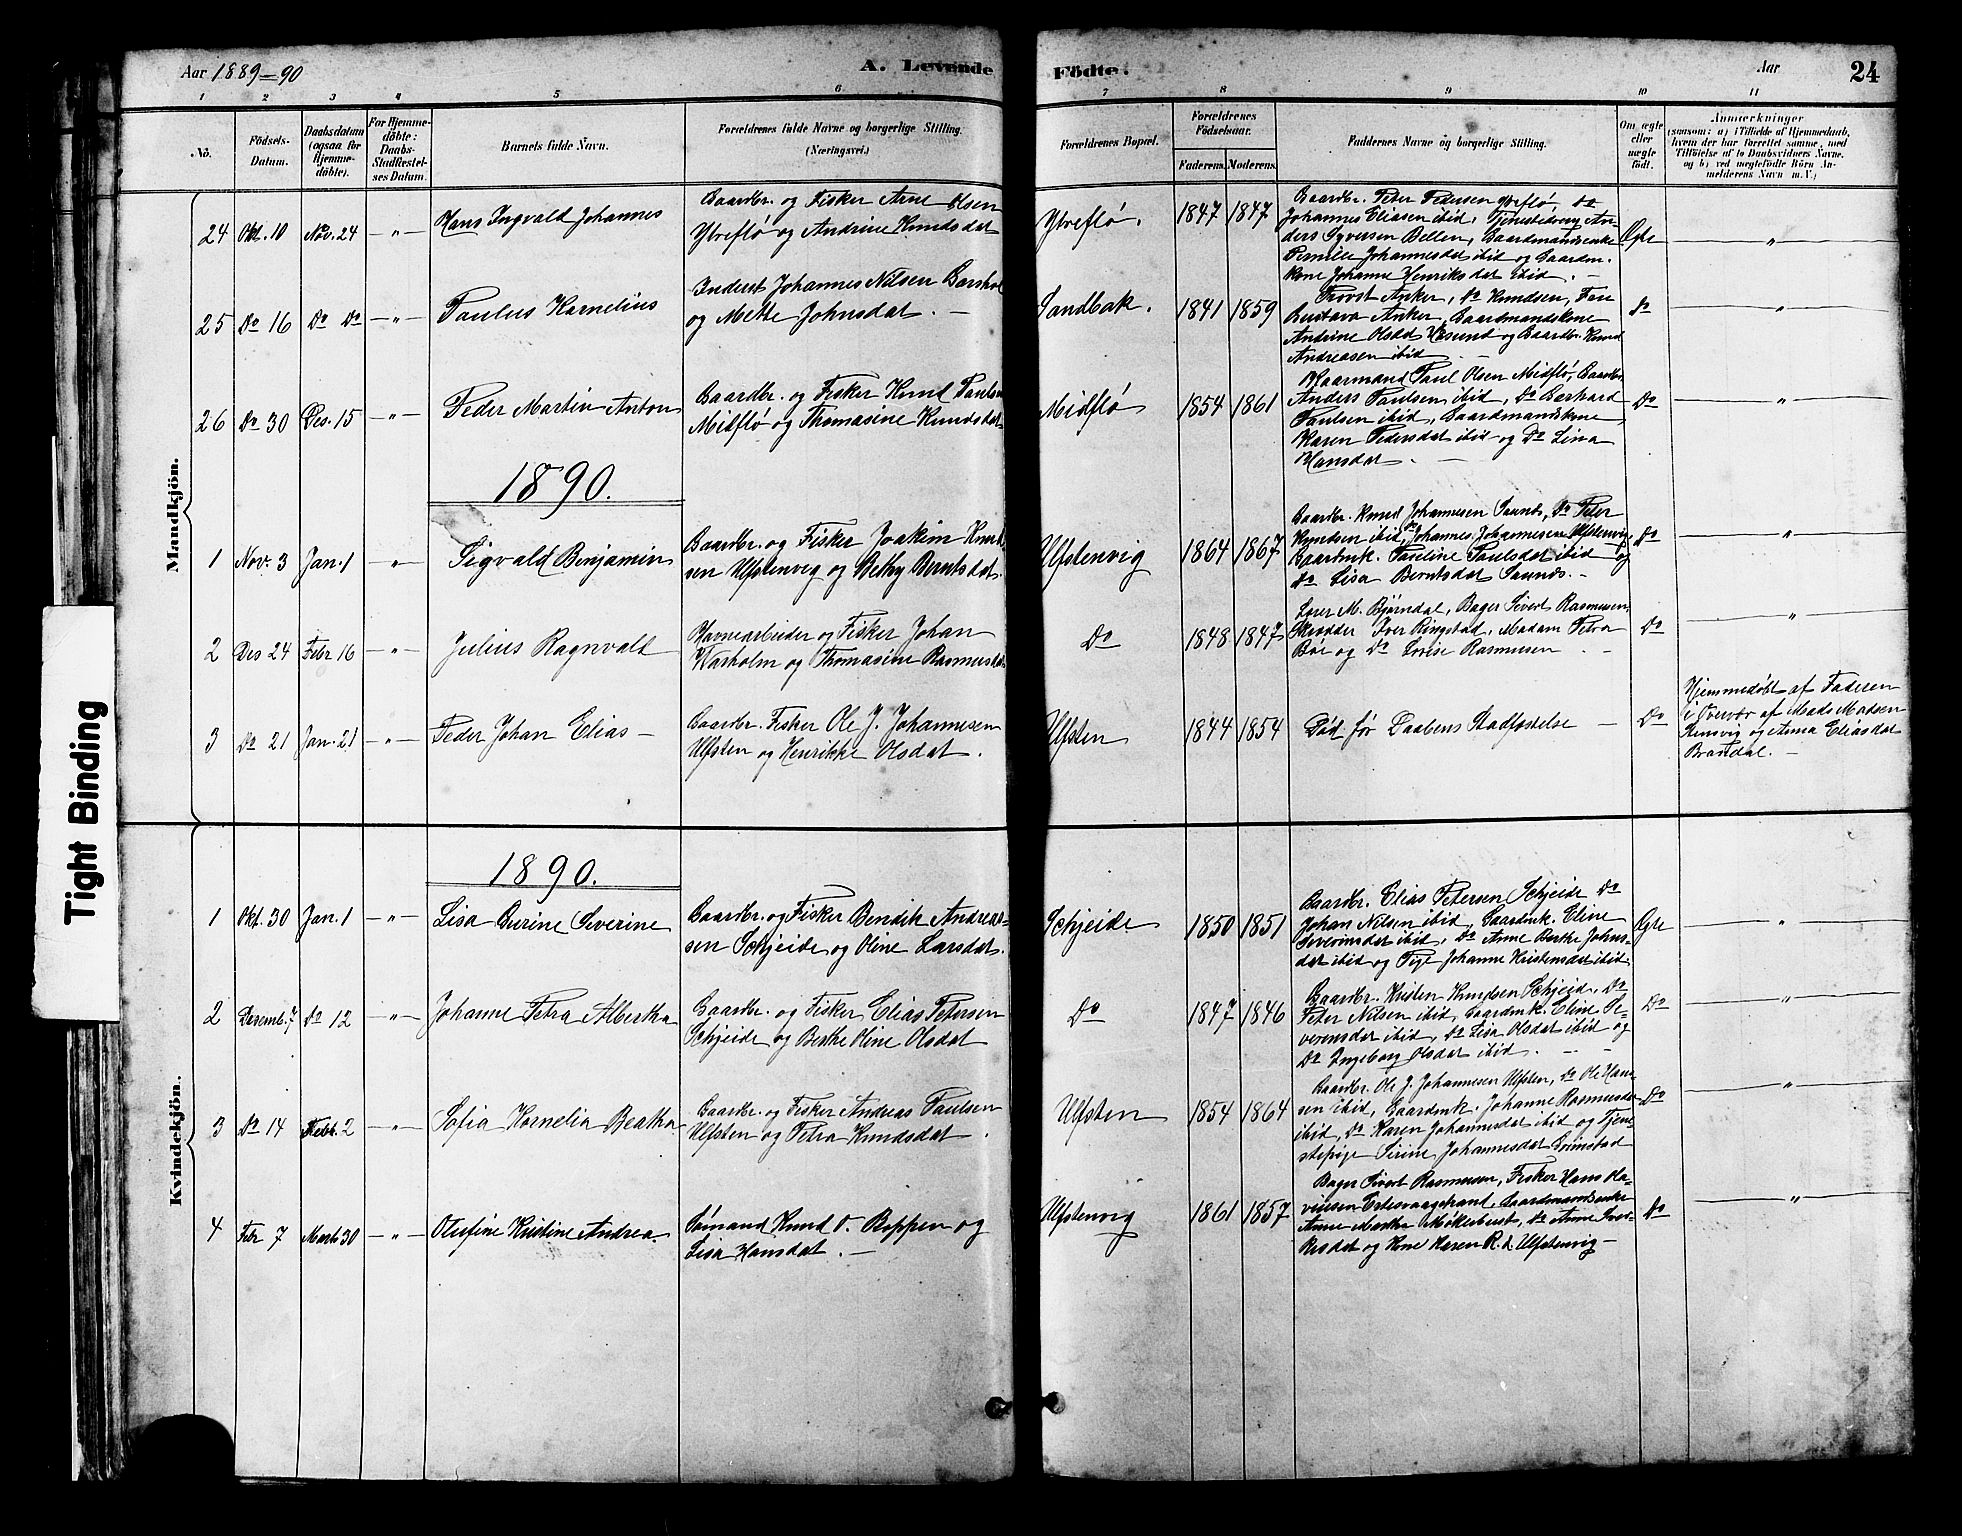 Aar 1889-90
A. Levende Födte.
Aar
24
1 2 3 4 5 6 7 8 9 10 11
No.
Födsels-Datum.
Daabsdatum (ogsaa for Hjemme-döbte).
For Hjemme-döbte: Daabs-Stadfæstel-ses Datum.
Barnets fulde Navn.
Forældrenes fulde Navne og borgerlige Stilling. (Næringsvei.)
Forældrenes Bopæl.
Forældrenes Födselsaar.
Faderens. Moderens.
Faddernes Navne og borgerlige Stilling.
Om ægte eller uægte födt.
Anmærkninger
(saasom: a) i Tilfælde af Hjemmedaab, hvem der har forrettet samme, med Tilföielse af to Daabsvidners Navne, og b) ved uægtefödte Börn An-melderens Navn m. V.)
Mandkjön.
24 Okt. 10 Nov. 24 -"- Hans Ingvald Johannes
Gaardbr. og Fisker Arne Olsen
Ytreflø og Andrine Knudsdat
Ytreflø. 1847 1847
Gaardbr. Peter Pedersen Ytreflø, Do
Johannes Eliasen ibid, Tjenestedreng An-
ders Syversen Bellen, Gaardmandsenke
Pernille Johannesdat ibid og Gaardm.
kone Johanne Henriksdat ibid. -
Ægte "
25 Do 16 Do Do -"- Paulus Kornelius
Inderst Johannes Nilsen
og Mette Johnsdat. -
Sandbak. 1841 1859
Provst Anker, Do Knudsen, Fru
Gustava Anker, Gaardmandskone
Andrine Olsdat og Gaardbr. Knud
Andreasen ibid -
Do "
26 Do 30 Des. 15 -"- Peder Martin Anton
Gaardbr. og Fisker Knud Paulsen
Midflø og Thomasine Knudsdat
Midflø 1854 1861
Kaarmand Paul Olsen Midflø, Gaardbr
Anders Paulsen, ibid, Do
Paulsen ibid, Gaardmandskone
Karen Pedersdat ibid og Do Lina
Hansdat. -
Do "
1890.
1 Nov. 3 Jan. 1 -"- Sigvald Benjamin
Gaardbr. og Fisker Joakim Knud-
sen Ulfstenvig og Betty Berntsdat.
Ulfstenvig 1864 1867
Gaardbr. Knud Johannesen Saunes, Do Peter
Knudsen ibid, Do Johannes Johannesen Ulfstenvig,
Gaardmk. Paulsdat ibid og
Do Lisa Berntsdat Saunes. -
Do "
2 Des 24 Febr 16 -"- Julius Ragnvald
Havnearbeider og Fisker Johan
Warholm og Thomasine Rasmusdat
Do 1848 1847
M. Bjørndal, Bager Sivert Rasmusen,
Skrædder Iver Ringstad, Madam Petra
Bøe og Do Lovise Rasmusen
Do "
3 Do 21 Jan. 21 -"- Peder Johan Elias -
Gaardbr. Fisker Ole J. Johannesen
Ulfsten og Henrikke Olsdat.
Ulfsten 1844 1854
Død før Daabens Stadfæstelse -
Do
Hjemmedøbt af Faderen
i Overvær af Mads Madsen
og Anna Eliasdat
Brandal. -
Kvindekjön.
1890.
1 Okt. 30 Jan. 1 -"- Lisa Gurine Severine
Gaardbr. og Fisker Bendik Andrea-
sen Schjeide og Oline Larsdat.
Schjeide 1850 1851
Gaardbr. Elias Petersen Schjeide Do
Johan Nilsen ibid, Gaardmk. Eline
Severinsdat ibid, Do Anne Berthe Johns-
dat ibid og Pige Johanne Kristensdat ibid.
Ægte "
2 Desemb. 7 Do 12 -"- Johanne Petra Albertha
Gaardbr. og Fisker Elias Petersen
Schjeide og Berthe Oline Olsdat
Do 1847 1846
Gaardbr. Kristen Knudsen Schjeide, Do
Peter Nilsen ibid, Gaardmk. Eline Se-
verensdat ibid, Do Lisa Olsdat ibid og
Do Ingeborg Olsdat ibid. -
Do "
3 Do 14 Febr. 2 -"- Sofia Kornelia Beatha
Gaardbr. og Fisker Andreas Paulsen
Ulfsten og Petra Knudsdat.
Ulfsten 1854 1864
Gaardbr. Ole J. Johannesen Ulfsten, Do Ole Han-
sen ibid, Gaardmk. Johanne Rasmusdat
ibid, Do Karen Johannesdat ibid og Tjene-
stepige Serine Johannesdat Grimstad
Do "
4 Febr 7 Marts 30 -"- Olufine Kristine Andrea
Sømand Knud O. Roppen og
Lisa Hansdat. -
Ulfstenvig 1861 1857
Bager Sivert Rasmusen, Fisker Hans Ola-
vesen Gaardmandsenke
Anne Martha Møklebust, Do Anne
og Kone Karen R. d. Ulfstenvig -
Do "
Tight Binding